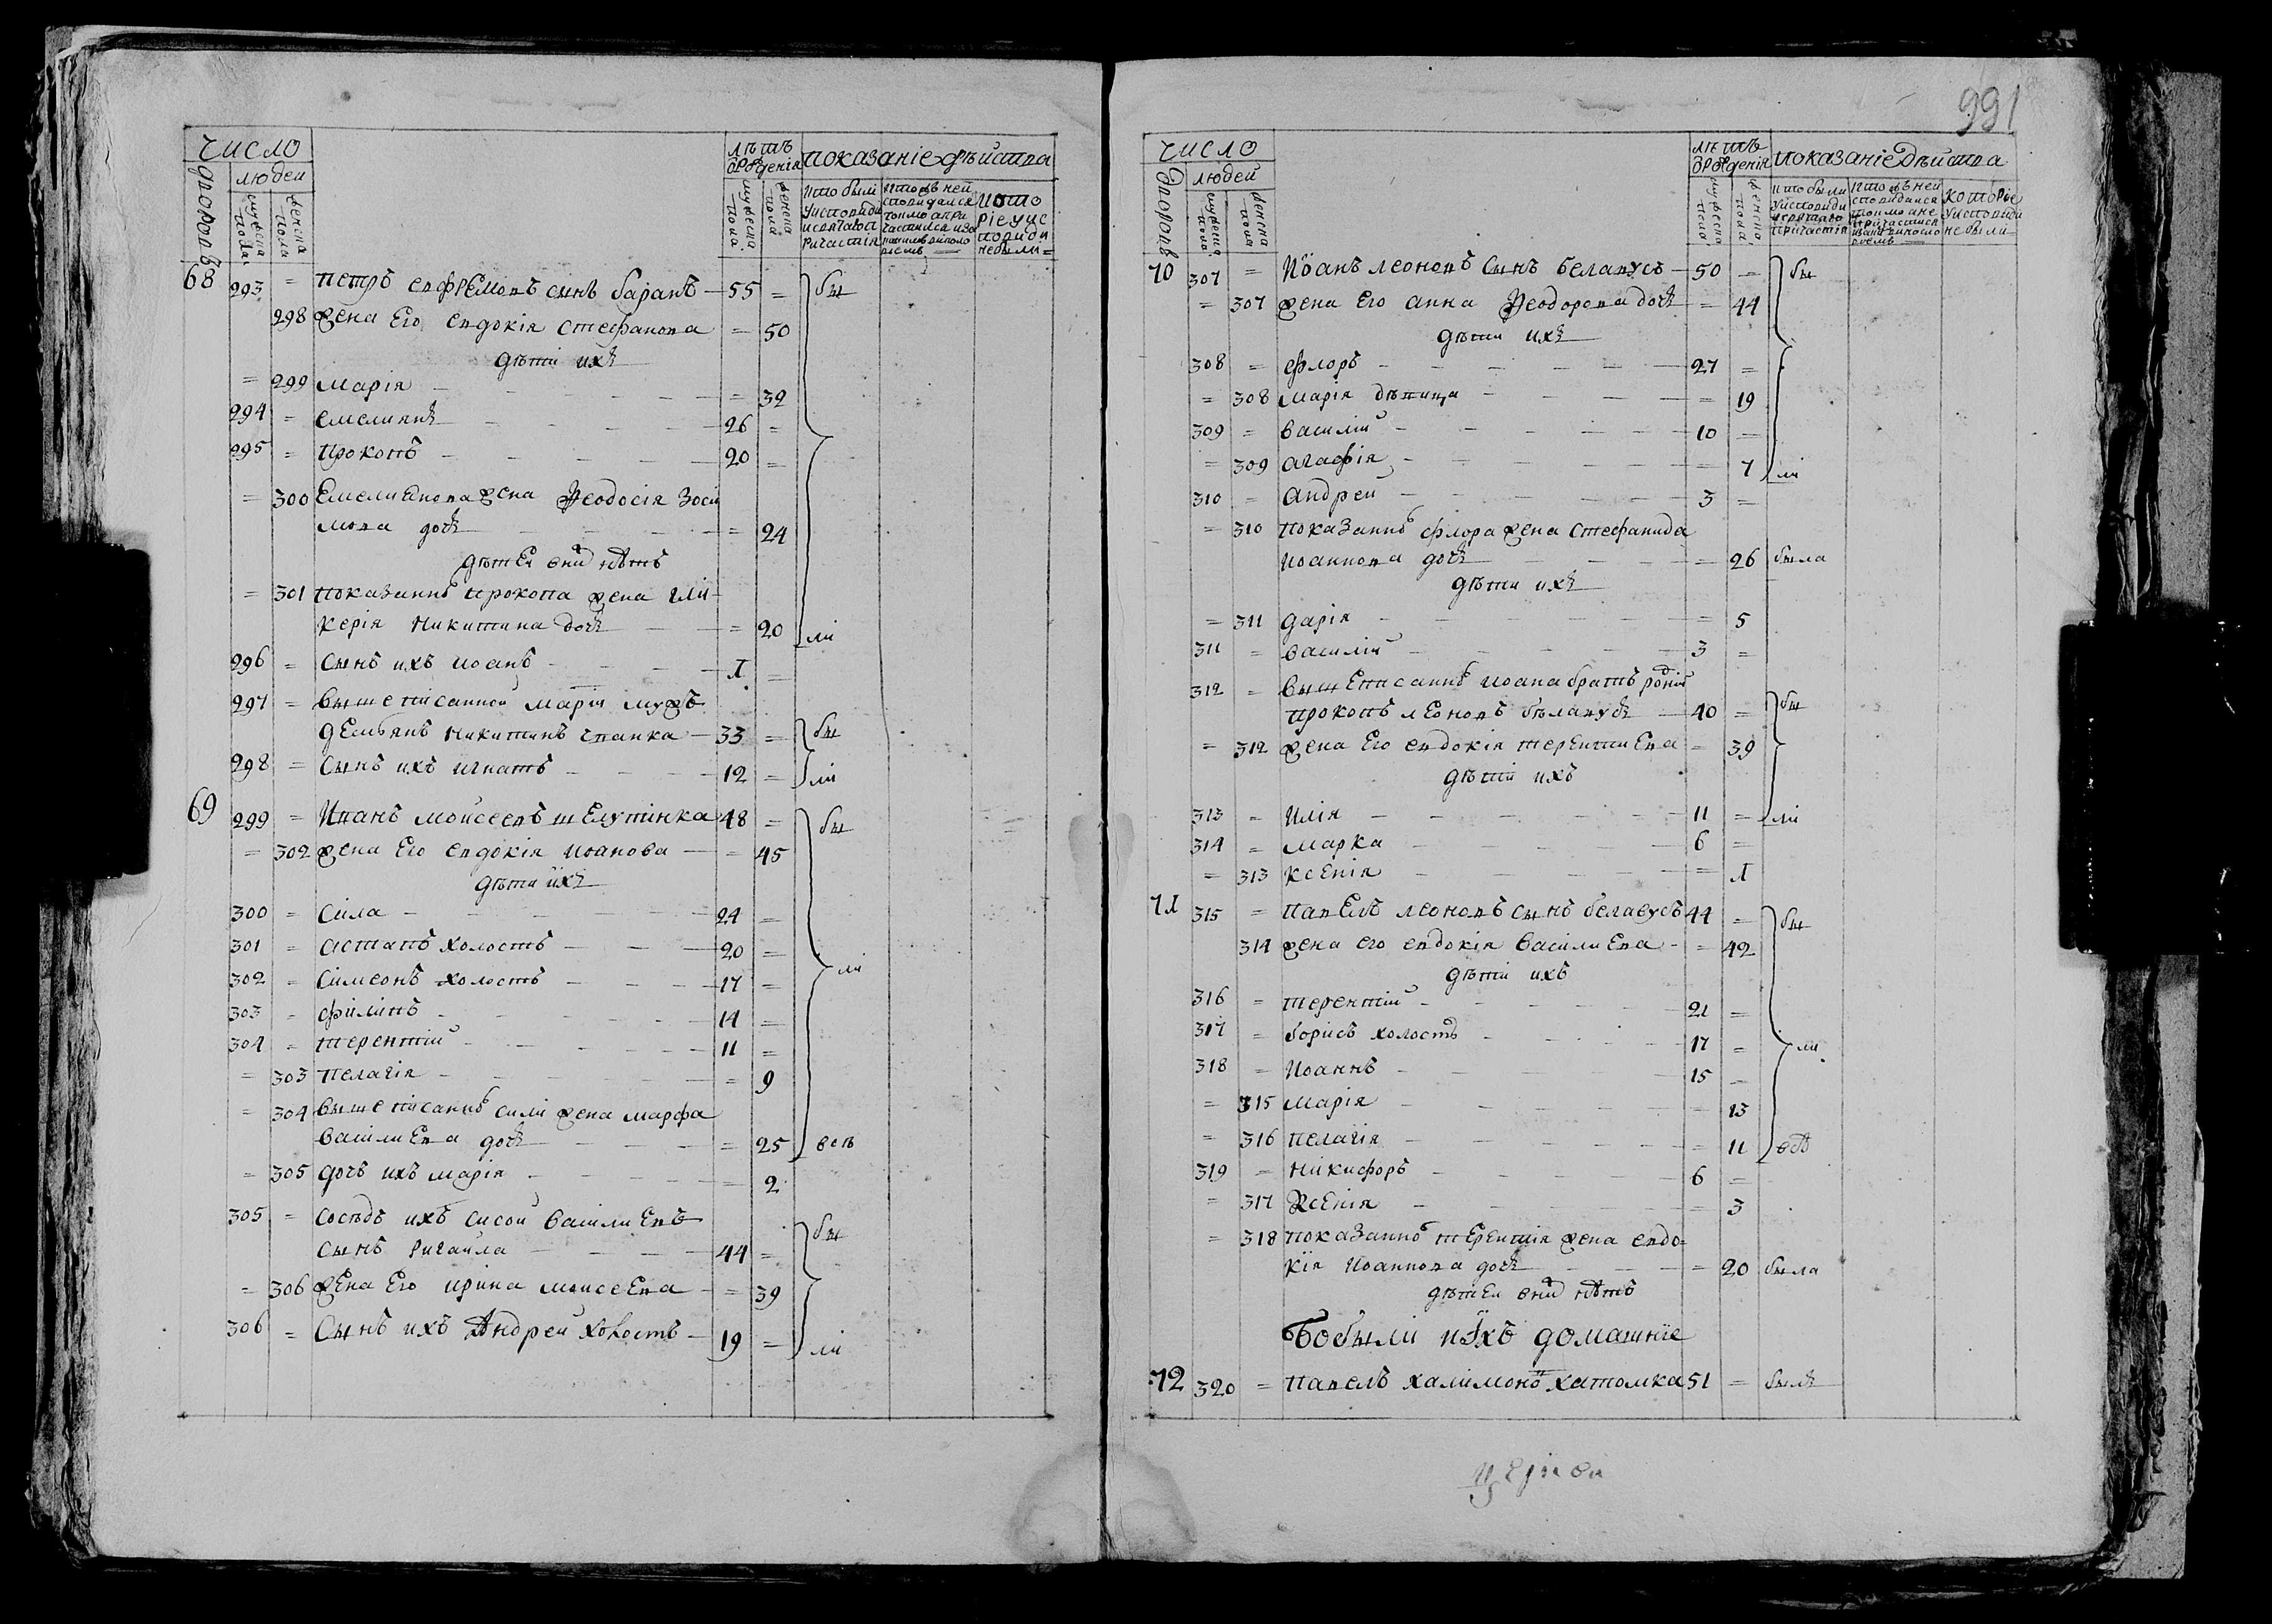 991
число
людей
дворовъ
мужеска пола
женска пола
лѣтъ
рожденія
мужеска пола
женска пола
показаніе дѣйства
68 293 = петръ евфремовъ сынъ баранъ — 55 = бы
298 жена Его евдокія стефанова = 50
дѣти ихъ
= 299 марія — = 32
294 = емелиянъ — 26 =
295 = прокопъ — 20 =
= 300 Емелиянова жена Ѳеодосія Зоси
мова дочь — = 24
дѣтей они нѣтъ
= 301 показаннѣ прокопа жена гли-
керія никитина дочь — = 20 ли
296 = сынъ ихъ иоанъ — 1 =
297 = вышеписанной маріи мужъ
демьянъ никитинъ — 33 = бы
298 = сынъ ихъ игнатъ — 12 = ли
69 299 = Иванъ моисеевъ шелутинка 48 = бы
= 302 жена Его евдокія иоанова — = 45
дѣти ихъ
300 = сила — 24 =
301 = астапъ холостъ — 20 =
302 = симеонъ холостъ — 17 = ли
303 = филипъ — 14 =
304 = терентий — 11 =
= 303 пелагія — = 9
= 304 вышеписаннѣ сили жена марфа
василиева дочь — = 25 всѣ
= 305 дочь ихъ марія — = 2
305 = сосѣдъ ихъ сисой василиевъ
сынъ ригайла — 44 = бы
= 306 жена Его ирина моисеева — = 39
306 = Сынъ ихъ Андрей холостъ — 19 = ли
число
людей
дворовъ
мужеска пола
женска пола
лѣтъ
рожденія
мужеска пола
женска пола
показаніе дѣйства
70 307 = Иоанъ леоновъ сынъ белавусъ — 50 = бы
= 307 жена Его анна Ѳеодорова дочь = 44
дѣти ихъ
308 = флоръ — 27 =
= 308 марія дѣвица — = 19
309 = василий — 10 =
= 309 агафія — = 7 ли
310 = андрей — 3 =
= 310 показаннѣ флора жена стефанида
иоаннова дочь — = 26 была
дѣти ихъ
= 311 дарія — = 5
311 = василий — 3 =
312 = вышеписаннѣ иоана братъ родній
прокопъ леоновъ бѣлавусъ — 40 = бы
= 312 жена Его евдокія терентиева = 39
дѣти ихъ
313 = илія — 11 = ли
314 = марка — 6 =
= 313 ксенія — = 1
71 315 = павелъ леоновъ сынъ белавусъ 44 = бы
314 жена его евдокія василиева — = 42
дѣти ихъ
316 = терентий — 21 =
317 = борисъ холостъ — 17 = ли
318 = иоаннъ — 15 =
= 315 марія — = 13
= 316 пелагія — = 11 всѣ
319 = никифоръ — 6 =
= 317 ксенія — = 3
= 318 показаннѣ терентія жена евдо-
кія иоаннова дочь — = 20 была
дѣтей они нѣтъ
Бобыли и ихъ домашніе
72 320 = павелъ халимонъ хатомка 51 = былъ